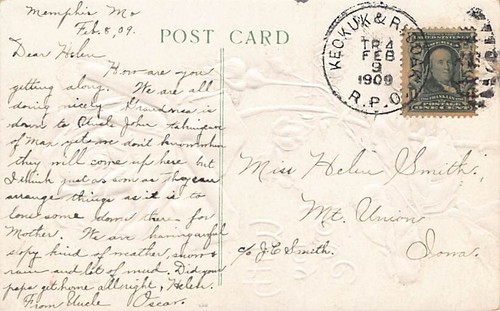 Memphis Mo
Feb. 8, 09.
POST CARD
Dear Helen
How are you
getting along. We are all
doing nicely Grandma is
down to Uncle John taking care
of Max yet we don't know when
they will come up here but
I think just as soon as they can
arrange things as it is to
lonesome down there for
Mother. We are having awful
sopy kind of weather, snow &
rain and lot of mud. Did your
papa get home allright, Helen.
From Uncle Oscar.
KEOKUK &
R.P.O.
TR 4
FEB
9
1909
Miss Helen Smith,
Mt. Union
Iowa.
c/o J.C. Smith.